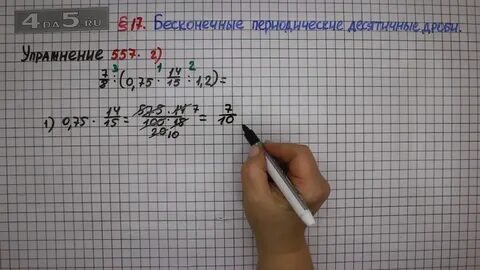 4DA5.RU
§17. Бесконечные периодические десятичные дроби.
Упражнение 557. 2)
3 1 2
7/8 : (0,75 · 14/15 : 1,2) =
1) 0,75 · 14/15 = 75 · 14 7 / 100 · 15 = 7/10
20 10